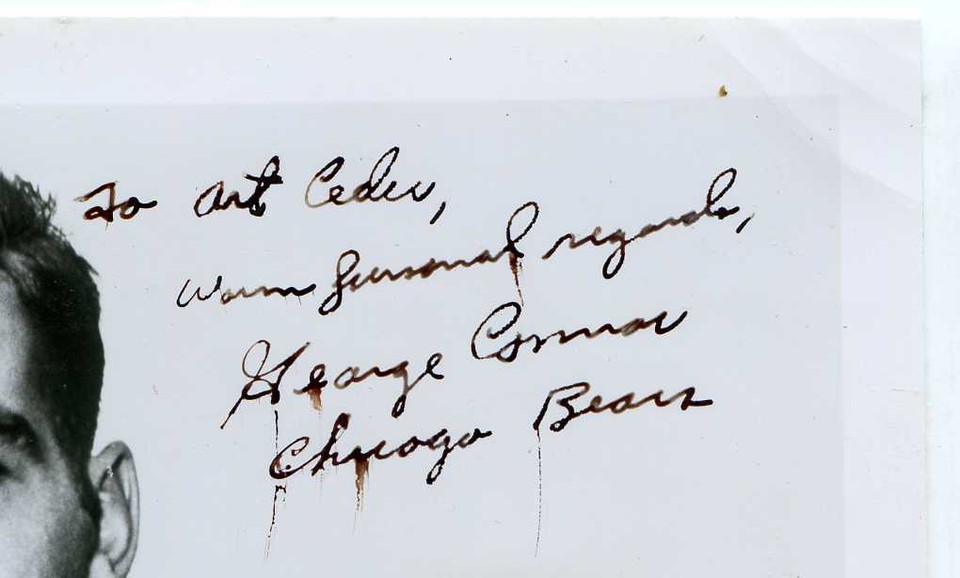 To Art Ceder,
Warm personal regards,
George Connor
Chicago Bears